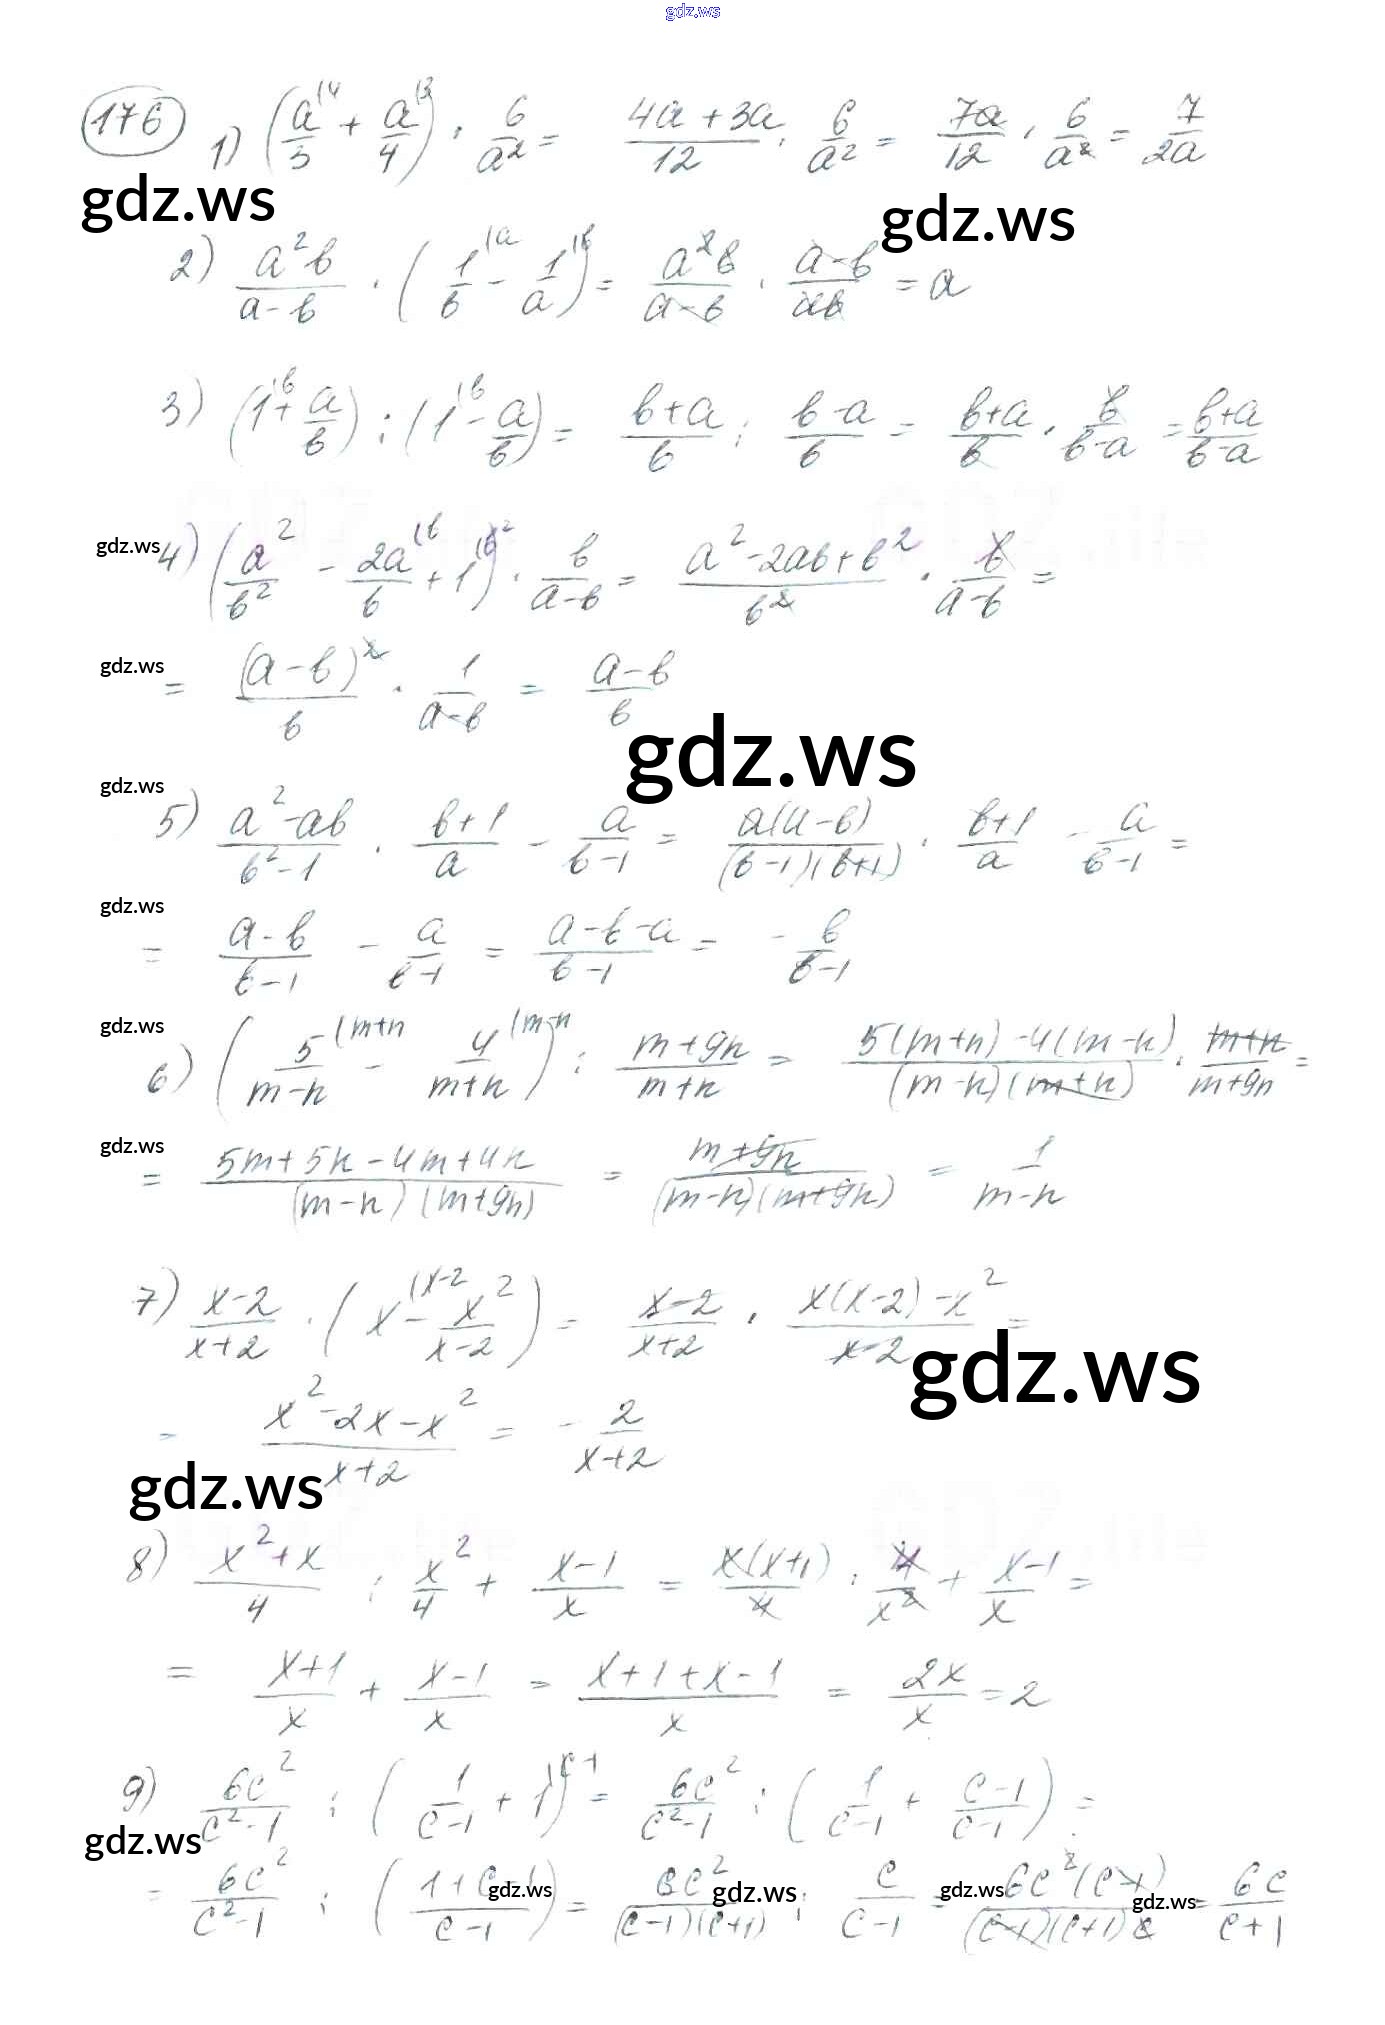 gdz.ws
176 1) (a/3 ⁽⁴ + a/4 ⁽³) · 6/a² = (4a + 3a)/12 · 6/a² = 7a/12 · 6/a² = 7/2a
gdz.ws gdz.ws
2) a²b/(a-b) · (1/b ⁽ᵃ - 1/a ⁽ᵇ) = a²b/(a-b) · (a-b)/ab = a
3) (1 ⁽ᵇ + a/b) : (1 ⁽ᵇ - a/b) = (b+a)/b : (b-a)/b = (b+a)/b · b/(b-a) = (b+a)/(b-a)
gdz.ws 4) (a²/b² - 2a/b ⁽ᵇ + 1 ⁽ᵇ²) · b/(a-b) = (a²-2ab+b²)/b² · b/(a-b) =
gdz.ws = (a-b)²/b · 1/(a-b) = (a-b)/b
gdz.ws
gdz.ws
5) (a²-ab)/(b²-1) · (b+1)/a - a/(b-1) = a(a-b)/(b-1)(b+1) · (b+1)/a - a/(b-1) =
gdz.ws
= (a-b)/(b-1) - a/(b-1) = (a-b-a)/(b-1) = - b/(b-1)
gdz.ws
6) (5/(m-n) ⁽ᵐ⁺ⁿ - 4/(m+n) ⁽ᵐ⁻ⁿ) : (m+9n)/(m+n) = (5(m+n)-4(m-n))/(m-n)(m+n) · (m+n)/(m+9n) =
gdz.ws
= (5m+5n-4m+4n)/(m-n)(m+9n) = (m+9n)/(m-n)(m+9n) = 1/(m-n)
7) (x-2)/(x+2) · (x ⁽ˣ⁻² - x²/(x-2)) = (x-2)/(x+2) · (x(x-2)-x²)/(x-2) =
gdz.ws
= (x²-2x-x²)/(x+2) = - 2/(x+2)
gdz.ws
8) (x²+x)/4 : x²/4 + (x-1)/x = x(x+1)/4 · 4/x² + (x-1)/x =
= (x+1)/x + (x-1)/x = (x+1+x-1)/x = 2x/x = 2
9) 6c²/(c²-1) : (1/(c-1) + 1 ⁽ᶜ⁻¹) = 6c²/(c²-1) : (1/(c-1) + (c-1)/(c-1)) =
gdz.ws
= 6c²/(c²-1) : ((1+c-1)/(c-1)) = 6c²/(c-1)(c+1) : c/(c-1) = 6c²(c-1)/(c-1)(c+1)c = 6c/(c+1)
gdz.ws gdz.ws gdz.ws gdz.ws